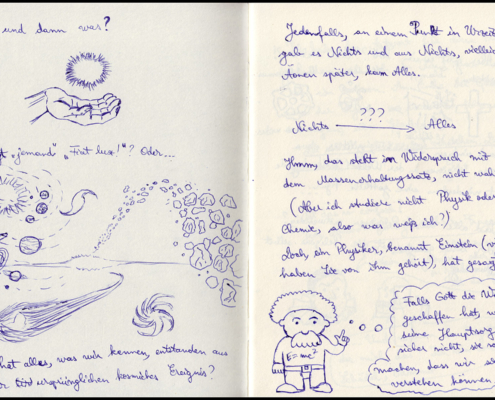 und dann was?
"jemand" „Fiat lux!"? Oder...
hat alles, was wir kennen, entstanden aus
ursprünglichen kosmisches Ereignis?
Jedenfalls, an einem Punkt in Urzeit
gab es Nichts und aus Nichts,
Äonen später, kam Alles.
???
Nichts → Alles
Hmm, das steht in Widerspruch mit
dem Massenerhaltungssatz, nicht
(Aber ich studiere nicht Physik oder
Chemie, also was weiß ich?)
Doch, ein Physiker, benannt Einstein
haben Sie von ihm gehört), hat
Falls Gott die
geschaffen hat,
seine
sicher nicht, sie so
machen, dass wir sie
verstehen können
E=mc²